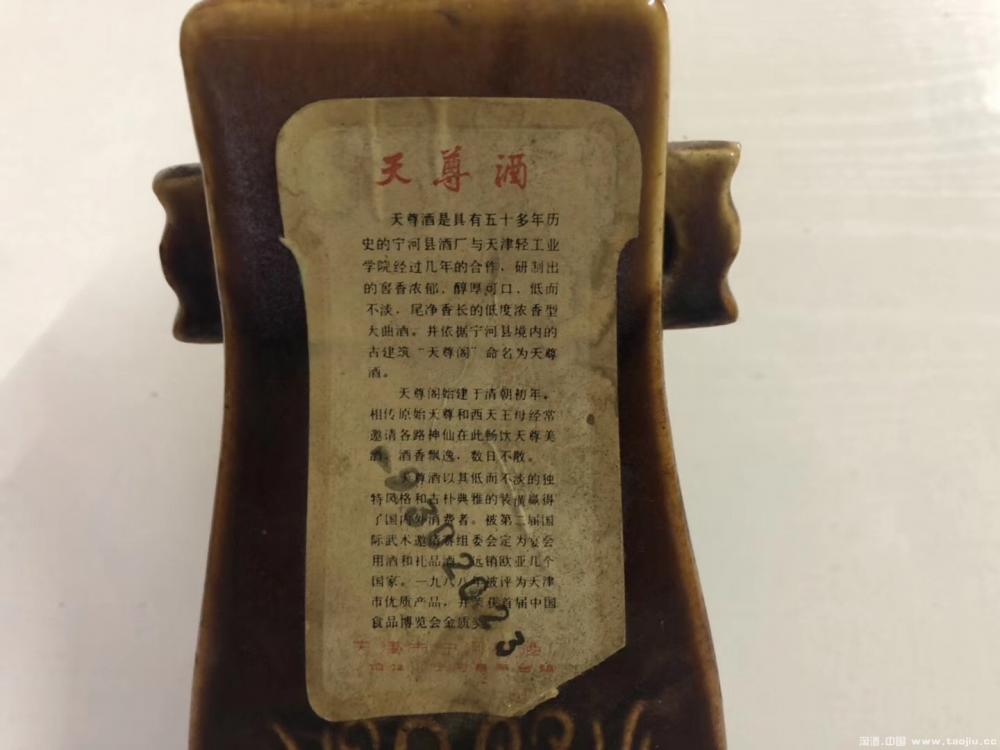 天尊酒
天尊酒是具有五十多年历
史的宁河县酒厂与天津轻工业
学院经过几年的合作，研制出
的窖香浓郁，醇厚可口，低而
不淡，尾净香长的低度浓香型
大曲酒。并依据宁河县境内的
古建筑“天尊阁”命名为天尊
酒。
天尊阁始建于清朝初年，
相传原始天尊和西天王母经常
邀请各路神仙在此畅饮天尊美
酒，酒香飘逸，数日不散。
天尊酒以其低而不淡的独
特风格和古朴典雅的装潢赢得
了国内外消费者。被第二届国
际武术邀请赛组委会定为宴会
用酒和礼品酒，远销欧亚几个
国家。一九八八年被评为天津
市优质产品，并荣获首届中国
食品博览会金质奖
19302023
淘酒.中国 www.taojiu.cc